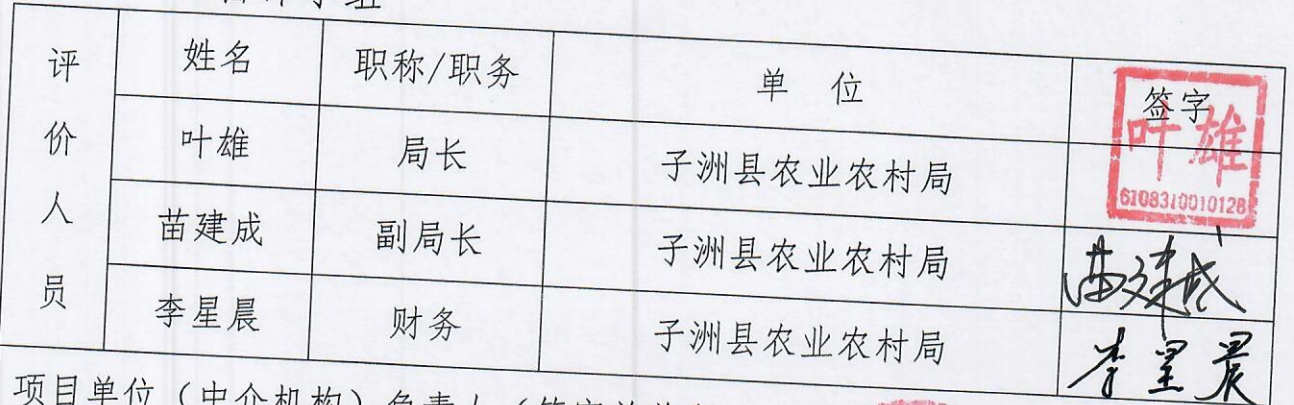 评价人员
姓名 职称/职务 单 位 签字
叶雄 局长 子洲县农业农村局 叶雄
6108310010128
苗建成 副局长 子洲县农业农村局 苗建成
李星晨 财务 子洲县农业农村局 李星晨
项目单位（中介机构）负责人（签字并盖